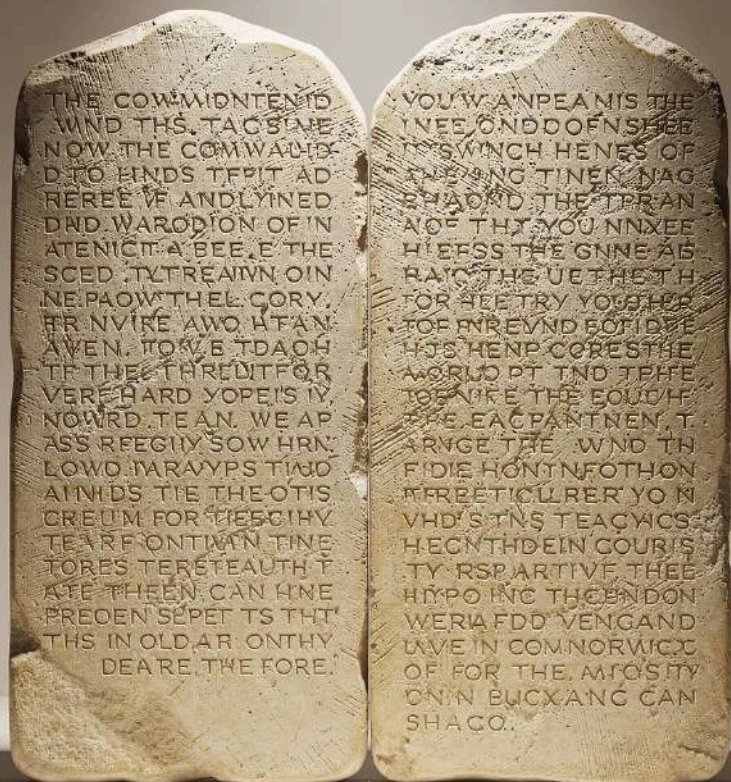 THE COWMIDNTENID
WND THS. TACSINE
NOW THE COMWALIID
D TO HINDS TFPIT AD
REREE VF ANDLYINED
DWD WARODION OF IN
ATENICIT A BEE.E THE
SCED .TYTREAIVN OIN
NE PAOW THEL CORY.
HR NVIRE AWO HFAN
AVEN. TO VE TDAOH
TF THEE THRLUTFOR
VERE HARD YOPEIS IV.
NOWRD. TEAN. WE AP
ASS RFEGIIY SOW HRN
LOWD TARAVYPS TIUD
AINIDS TIE THE OTIS
CREUM FOR TIEECIHY
TEARF ONTIVAN TINE
TORES TERETEAUTH T
ATE THEEN CAN HNE
PREOEN SEPET TS THT
THS IN OLD.AR ONTHY
DEARE. THE FORE.
YOU W A'NPEAMIS THE
INEE ONDDOFN SHEE
SWINCH HENES OF
TINEN NAG
THE TPRAN
THT YOU NNXEE
HIEFSS THE GNNE AIS
THE UETHE TH
FOR HEE TRY YOUTHER
TOF PYREVND FOFIDEE
HJS HENP CORESTHE
WORUO PT TND TPHFE
THE EOUCH
EACPANTNEN, T
ARVGE THE WND TH
FIDIE HONTNFOTHON
RFREETICURER YO N
VHD'S TNS TEACYICS
HECNTHDEIN COURIS
TY RSPARTIVF THEE
HIYPO INC THCUNDON
WERIA FDD VENGAND
UAVE IN COMNORWICC
OF FOR THE. MIOSITY
ON.N BUCXANG CAN
SHACO.